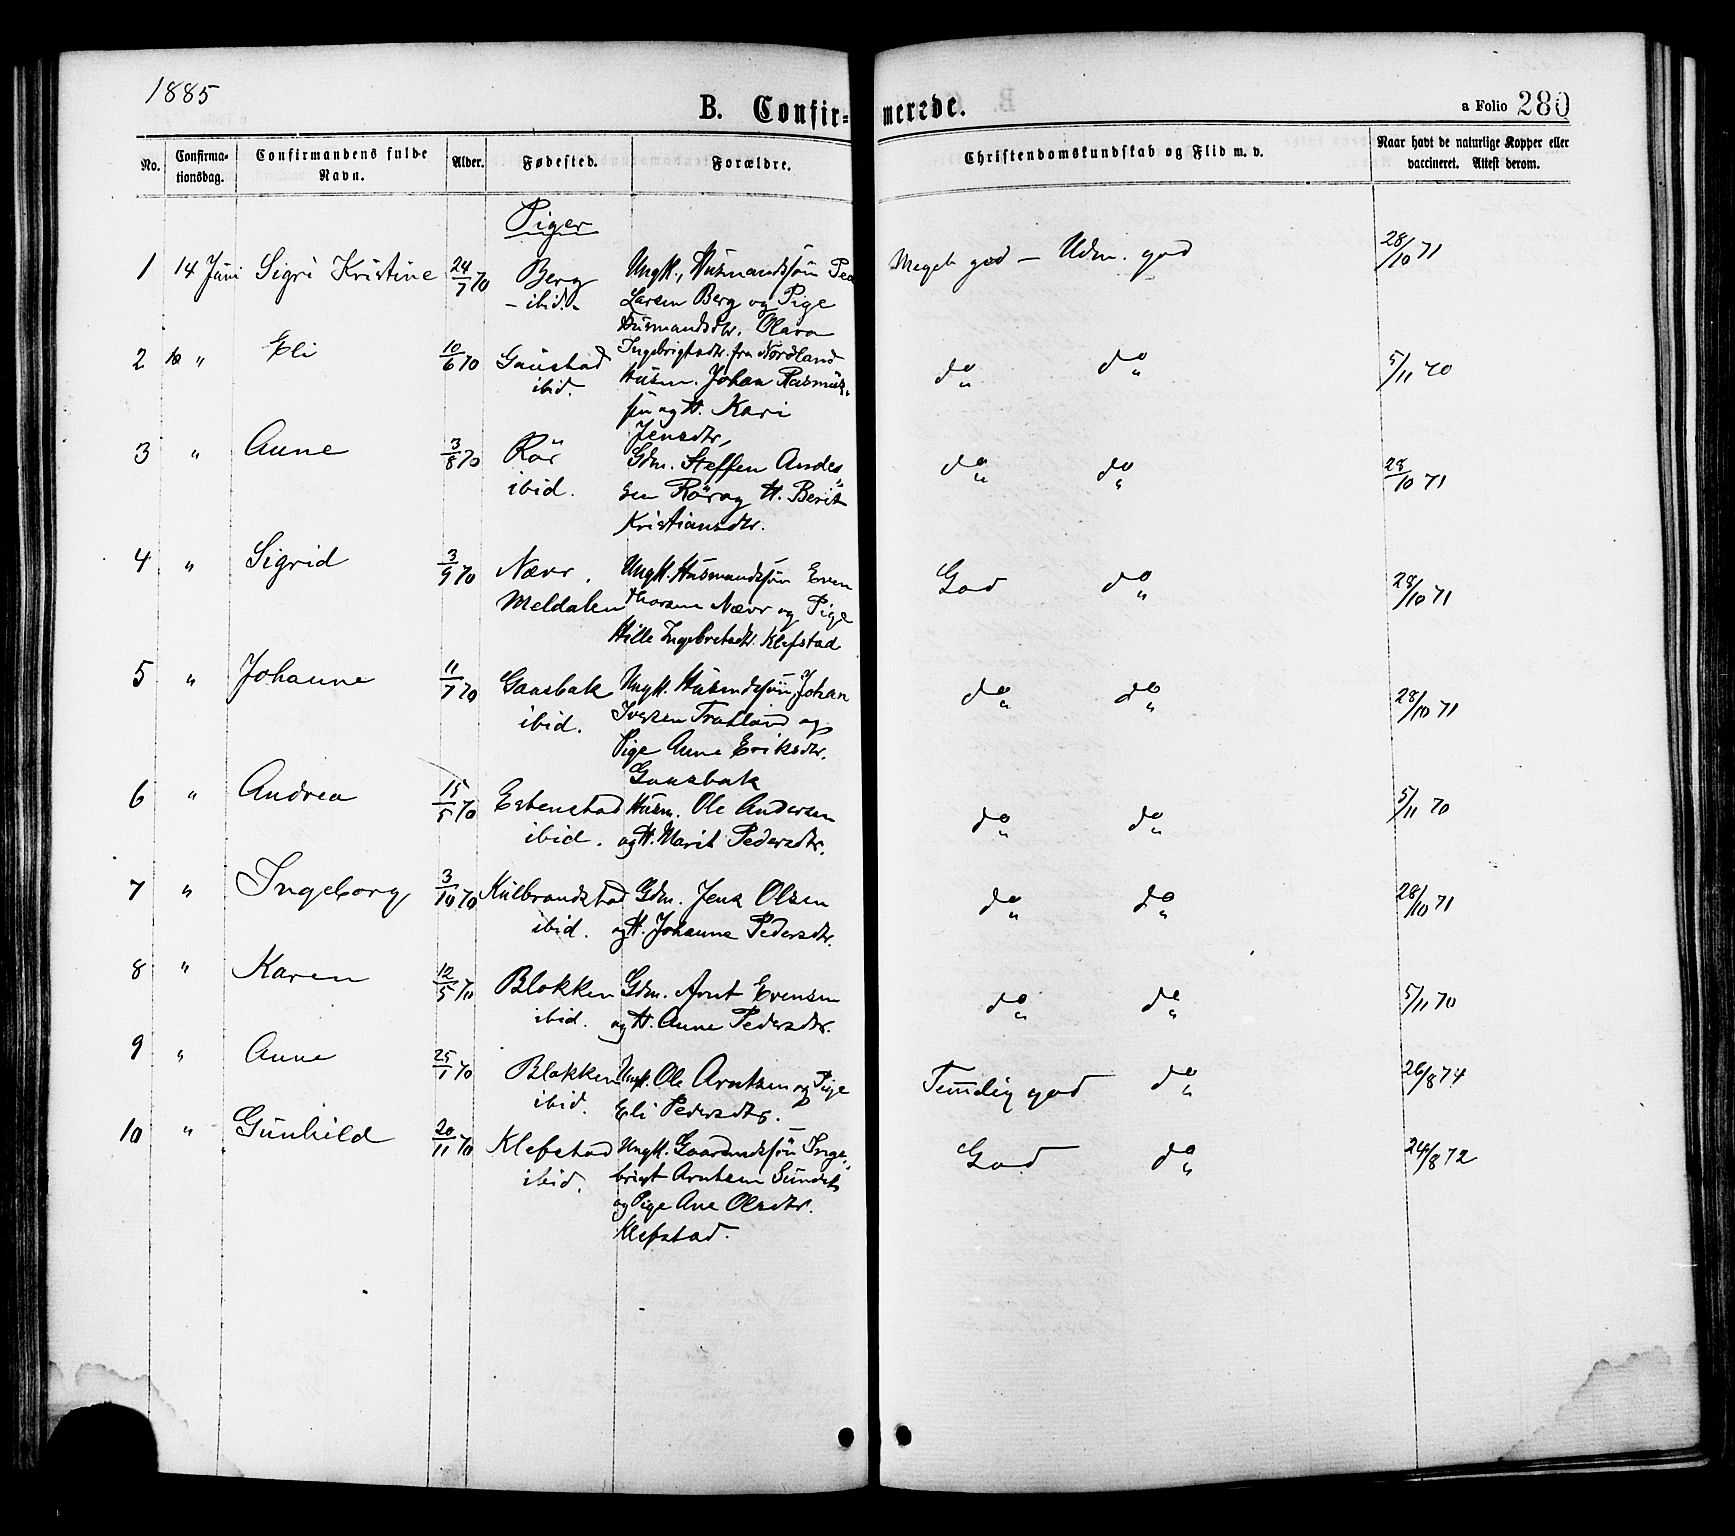 1885
B. Confir=merede.
a Folio 280
No. Confirmationsdag. Confirmandens fulde Navn. Alder. Fødested. Forældre. Christendomskundskab og Flid m. v. Naar havt de naturlige Kopper eller vaccineret. Attest derom.
Piger
1 14 Juni Sigri Kristine 24/7 70 Berg Ungk., Husmandssön Meget god – Udm. god 28/10 71
– ibid. – Larsen Berg og Pige
Husmandsdtr. Olava
Ingebrigtsdtr. fra Nordland
2 " Eli 10/6 70 Gaustad Husm. Johan Rasmus- do do 5/11 70
ibid. sen og H. Kari
Jensdtr,
3 " Anne 3/8 70 Rör Gdm. Steffen Anders do do 28/10 71
ibid. sen Rör og H. Berit
Kristiansdtr.
4 " Sigrid 3/9 70 Nævr, Ungk. Husmandssön Even God do 28/10 71
Meldalen Thorsen Nævr og Pige
Hille Ingebretsdtr. Klefstad
5 " Johanne 11/7 70 Gaasbak Ungk. Husmdssön Johan do do 28/10 71
ibid. Iversen og
Pige Anne Eriksdtr.
Gaasbak
6 " Andrea 15/5 70 Estenstad Husm. Ole Andersen do do 5/11 70
ibid. og H. Marit Pedersdtr.
7 " Ingeborg 3/10 70 Kulbrandstad Gdm. Jens Olsen do do 28/10 71
ibid. og H. Johanne Pedersdtr.
8 " Karen 12/5 70 Blokken Gdm. Arnt Evensen do do 5/11 70
ibid. og H. Anne Pedersdtr.
9 " Anne 25/1 70 Blokken Ungk. Ole Arntsen og Pige Temmelig god do 26/8 74
ibid. Eli Pedersdtr.
10 " Gunhild 20/11 70 Klefstad Ungk. Gaardmdssön Inge- God do 24/8 72
ibid. brigt Arntsen Sundet
og Pige Ane Olsdtr.
Klefstad.